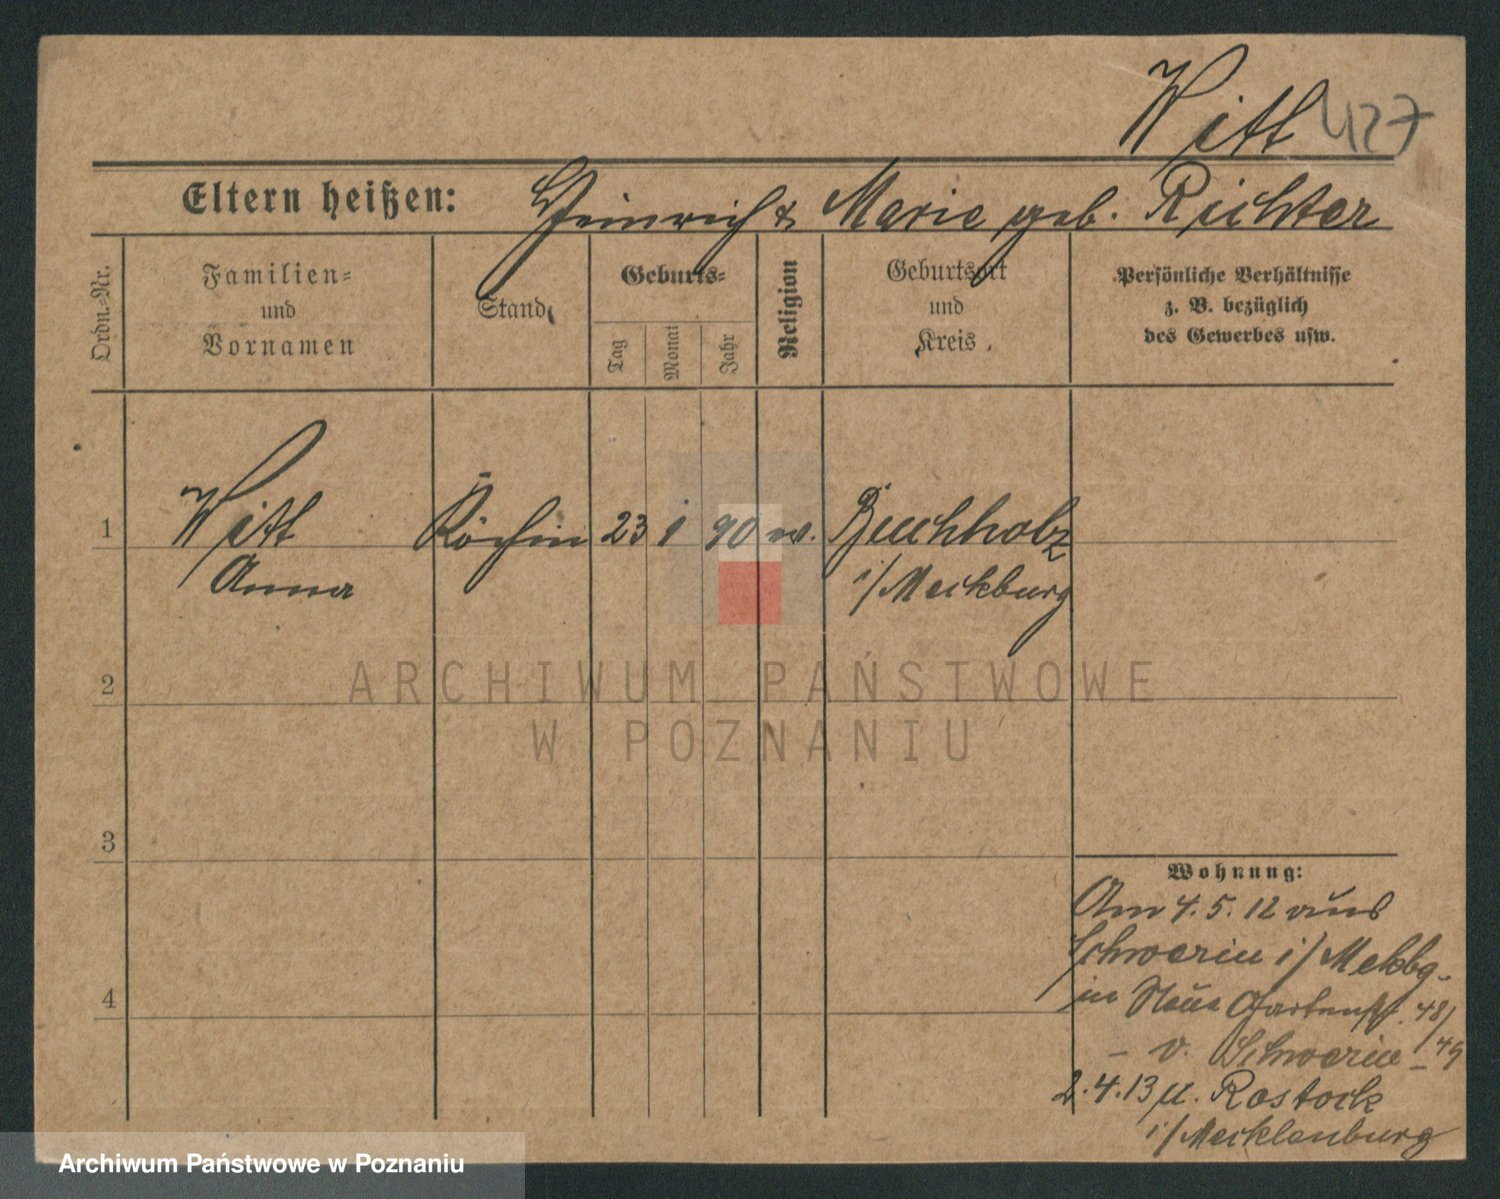 Witt 427
Eltern heißen: Heinrich & Marie geb. Richter
Ordn.=Nr.
Familien=
und
Vornamen
Stand
Geburts=
Tag
Monat
Jahr
Religion
Geburtsort
und
Kreis
Persönliche Verhältnisse
z. B. bezüglich
des Gewerbes usw.
1 Witt Köchin 23 1 90 ev. Buchholz
Anna i/Meckburg
2
3
4
Wohnung:
Am 4.5.12 aus
Schwerin i/Meklbg.
in Neue Gartenstr. 48/
49
– v. Schwerin –
2.4.13 n. Rostock
i/Mecklenburg
ARCHIWUM PAŃSTWOWE
W POZNANIU
Archiwum Państwowe w Poznaniu